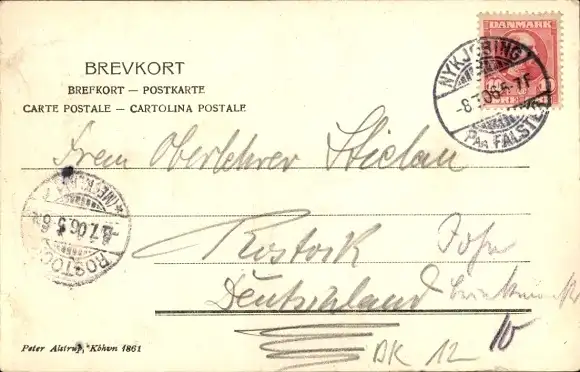 BREVKORT
BREFKORT — POSTKARTE
CARTE POSTALE — CARTOLINA POSTALE
DANMARK
10 ØRE
NYKJØBING
-8.7.06.5-7F
PAA FALSTER
Frau Oberlehrer
Rostock
Deutschland
ROSTOCK
-8.7.06.5-6
(MECKLB)
Peter Alstrup, Kbhvn 1861
AK 12
10